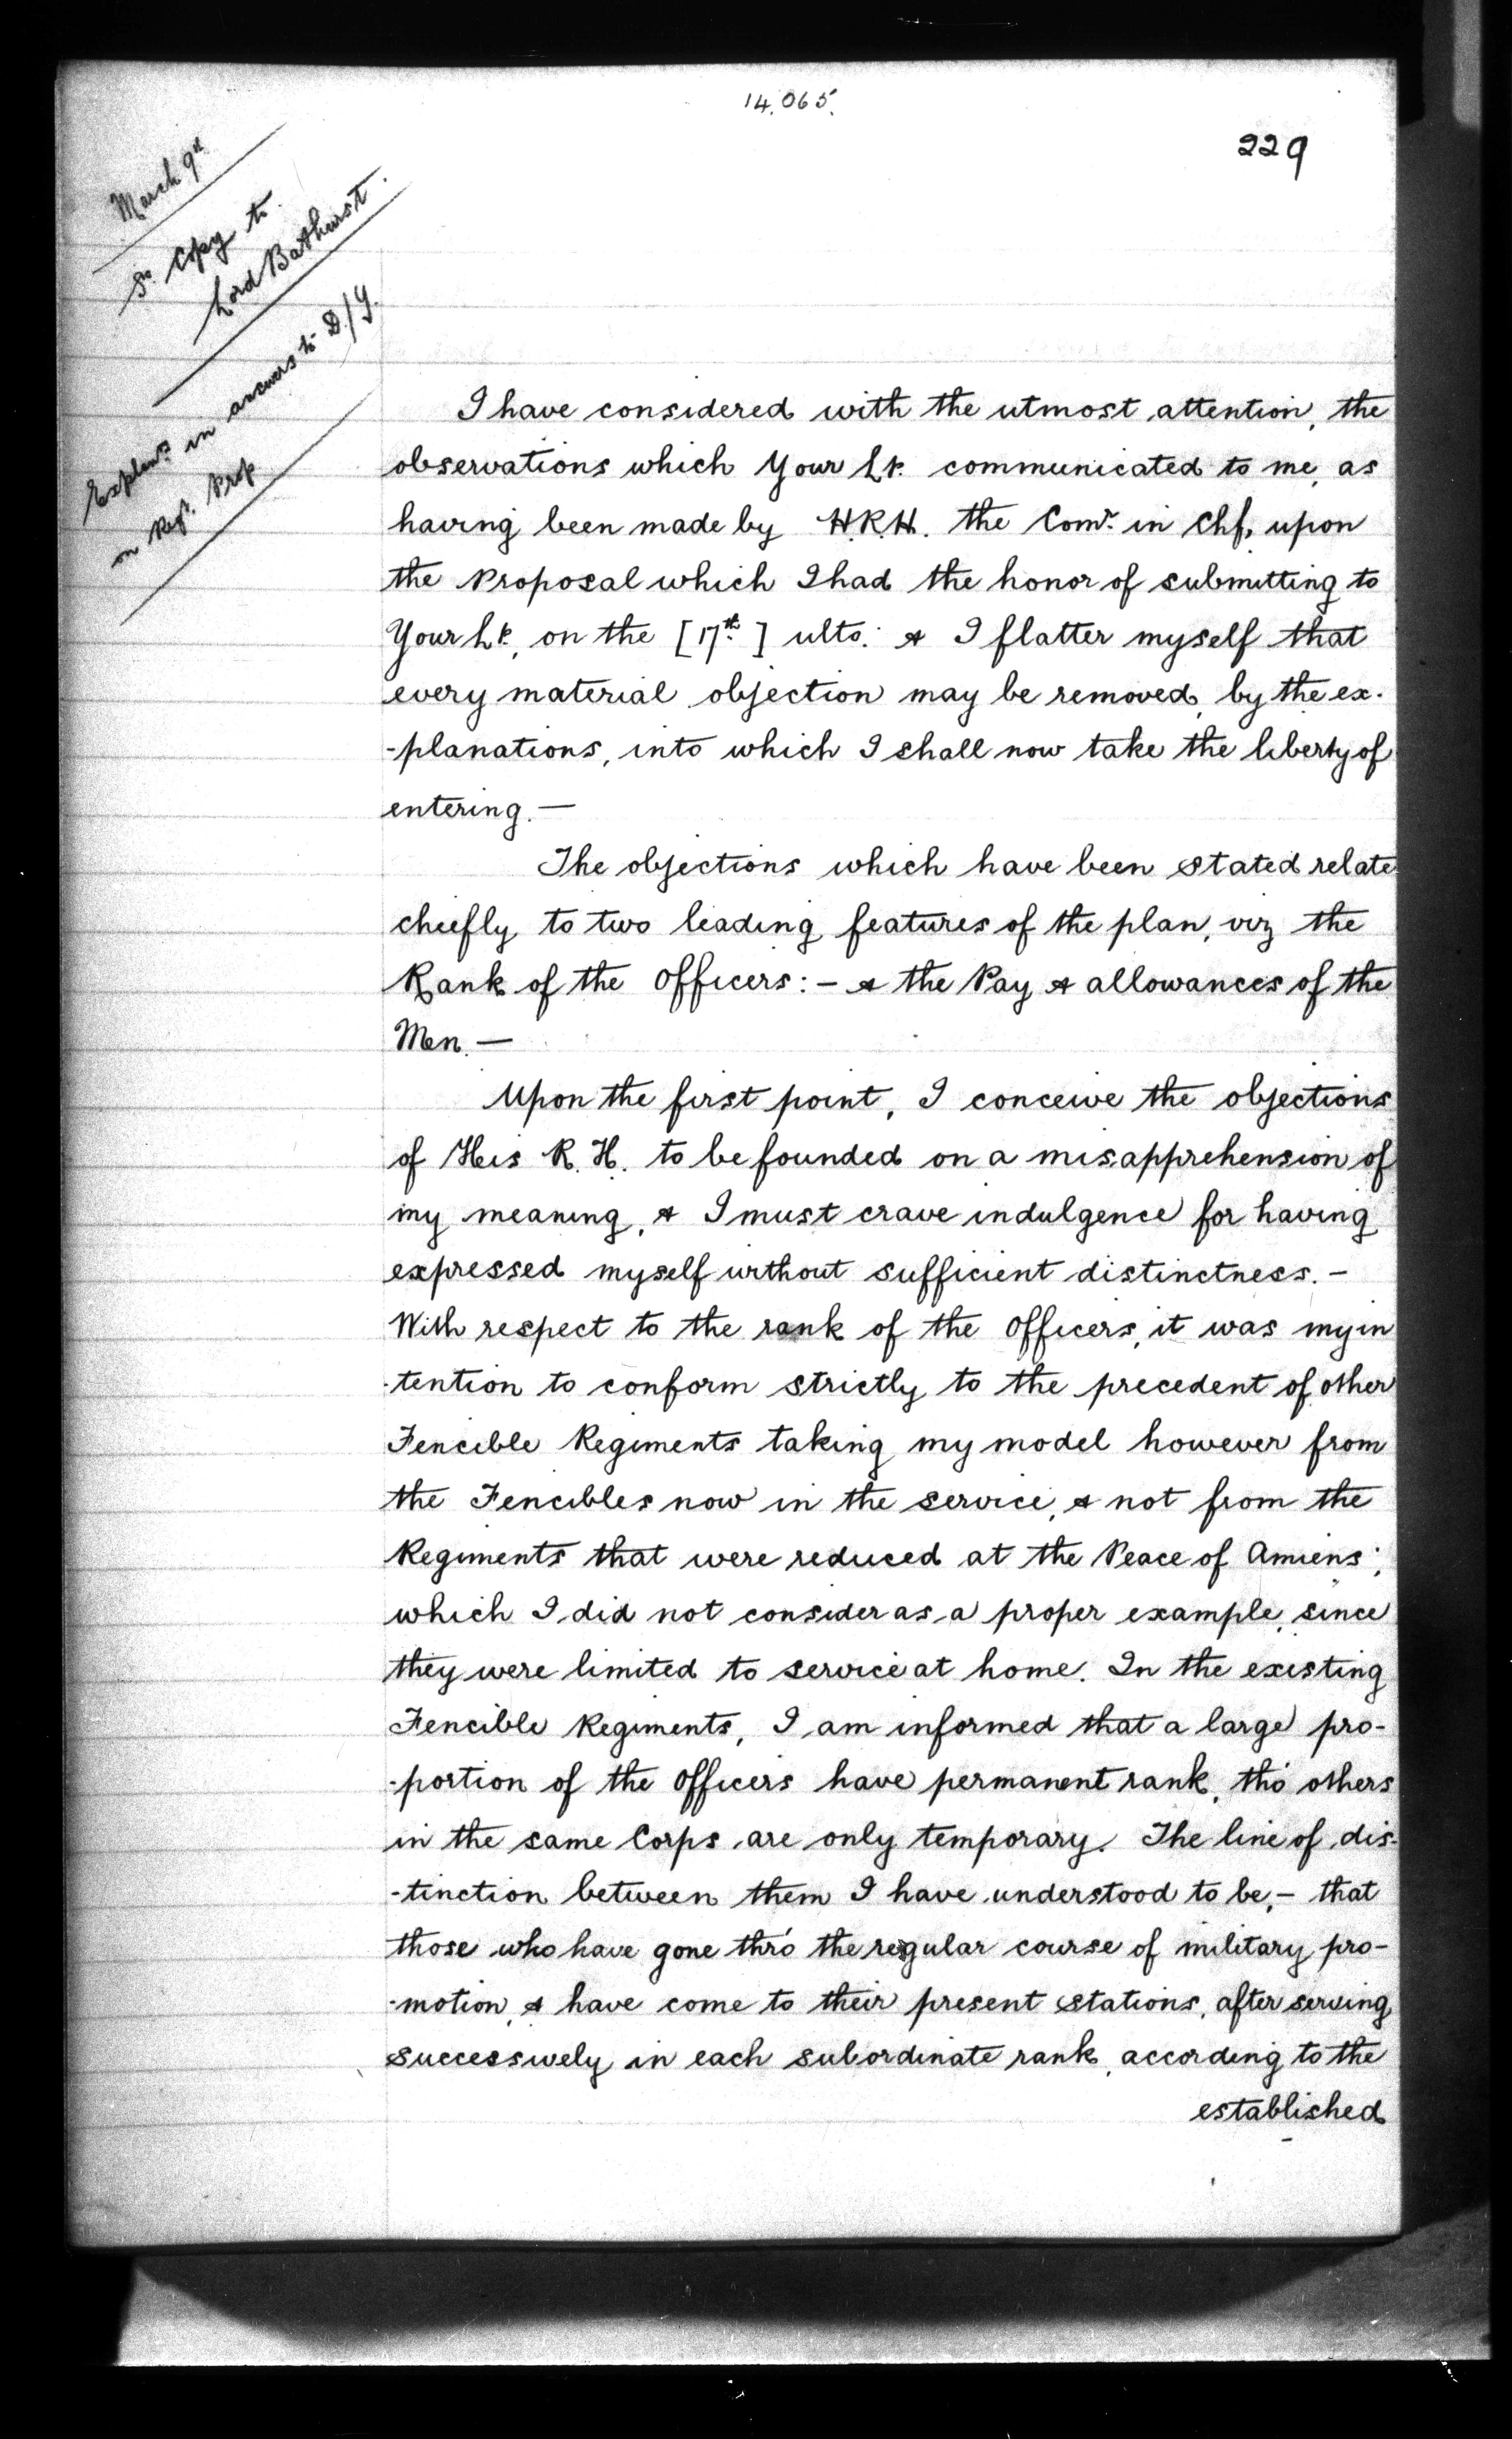 14.065.
229
March 9th
Sn. Copy to
Lord Bathurst.
Explans. in answers to D/Y.
on Regt. Prop
I have considered with the utmost attention, the
observations which Your Lp. communicated to me, as
having been made by H.R.H. the Comr. in Chf, upon
the Proposal which I had the honor of submitting to
Your Lp., on the [17th.] ulto: & I flatter myself that
every material objection may be removed, by the ex-
-planations, into which I shall now take the liberty of
entering. —
The objections which have been stated relate
chiefly to two leading features of the plan, viz the
Rank of the Officers: – & the Pay & allowances of the
Men. —
Upon the first point, I conceive the objections
of His R. H. to be founded on a misapprehension of
my meaning, & I must crave indulgence for having
expressed myself without sufficient distinctness. –
With respect to the rank of the Officers, it was my in
-tention to conform strictly to the precedent of other
Fencible Regiments taking my model however from
the Fencibles now in the service, & not from the
Regiments that were reduced at the Peace of Amiens;
which I did not consider as a proper example, since
they were limited to service at home. In the existing
Fencible Regiments, I am informed that a large pro-
-portion of the Officers have permanent rank, tho' others
in the same Corps are only temporary. The line of dis-
-tinction between them I have understood to be, – that
those who have gone thro' the regular course of military pro-
-motion, & have come to their present stations, after serving
successively in each subordinate rank, according to the
established